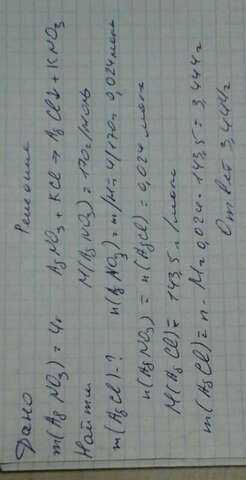 Дано Решение
m(AgNO3) = 4г AgNO3 + KCl → AgCl↓ + KNO3
Найти M(AgNO3) = 170 г/моль
m(AgCl) - ? n(AgNO3) = m/M = 4/170 = 0,024 моль
n(AgNO3) = n(AgCl) = 0,024 моль
M(AgCl) = 143,5 г/моль
m(AgCl) = n · M = 0,024 · 143,5 = 3,444 г
Ответ 3,444 г